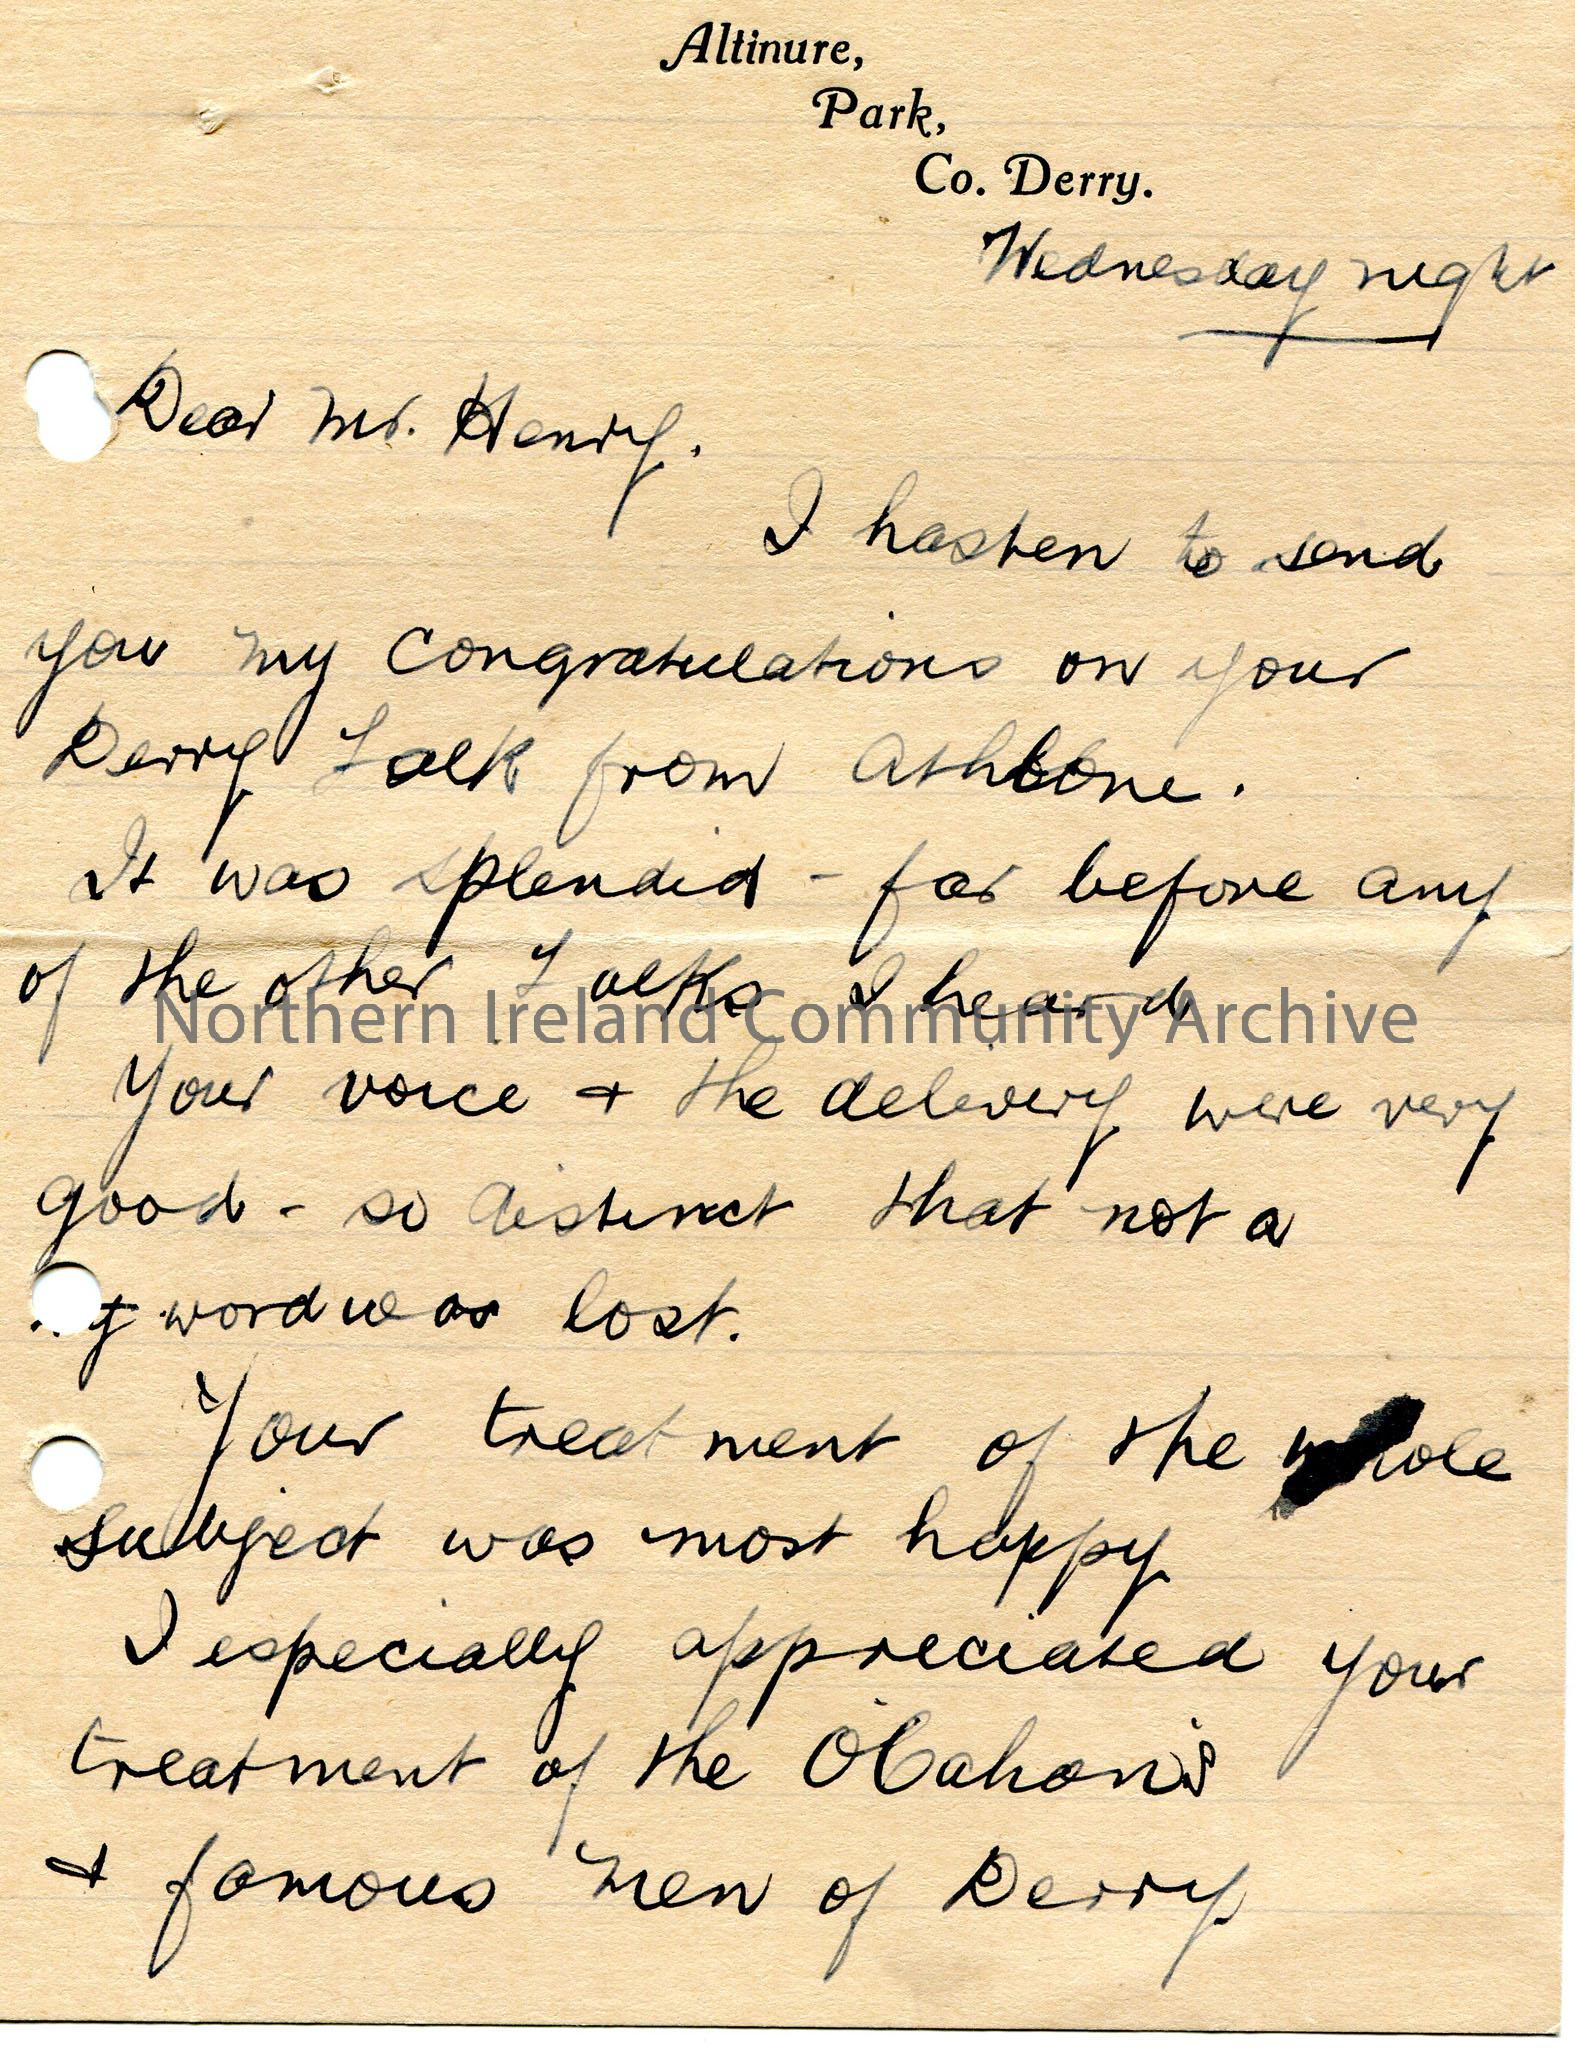 Altinure,
Park,
Co. Derry.
Wednesday night
Dear Mr. Henry.
I hasten to send
you my congratulations on your
Derry Talk from Athlone.
It was splendid - far before any
of the other Talks I heard
Northern Ireland Community Archive
Your voice + the delivery were very
good - so distinct that not a
word was lost.
Your treatment of the whole
subject was most happy
I especially appreciated your
treatment of the O'Cahan's
+ famous men of Derry